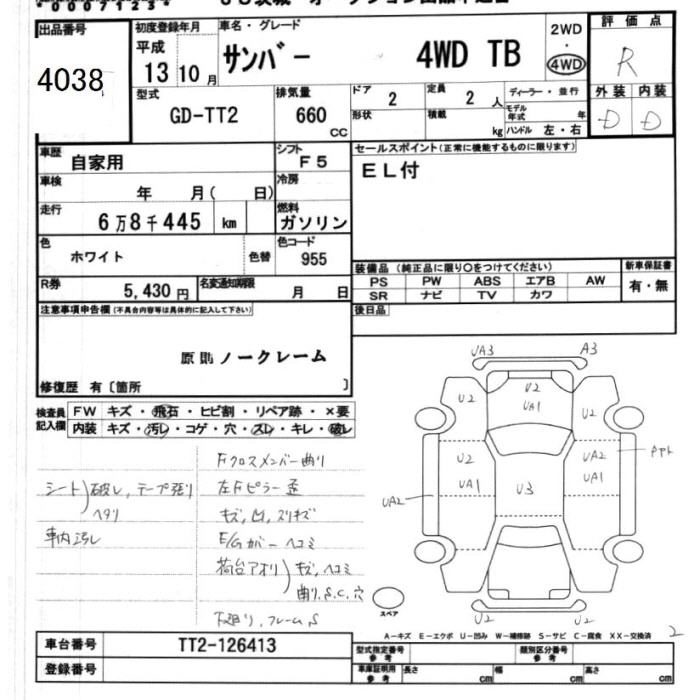 *000071234*
出品番号
4038
初度登録年月
平成
13 10月
車名・グレード
サンバー 4WD TB
2WD
・
4WD
評価点
R
外装 内装
D D
型式
GD-TT2
排気量
660
CC
ドア
2
形状
定員
2 人
積載
kg
ディーラー・並行
モデル年式 年
ハンドル 左・右
車歴
自家用
シフト
F5
車検
年 月( 日)
冷房
走行
6万8千445 km
燃料
ガソリン
色
ホワイト
色替
色コード
955
R券
5,430円
名変通知期限
月 日
セールスポイント(正常に機能するものに限ります)
EL付
装備品 (純正品に限り〇をつけてください)
PS PW ABS エアB AW
SR ナビ TV カワ
新車保証書
有・無
後日品
注意事項申告欄(不具合内容等は具体的に記入して下さい)
原則ノークレーム
修復歴 有〔箇所 〕
検査員
記入欄
FW キズ・飛石・ヒビ割・リペア跡・×要
内装 キズ・汚レ・コゲ・穴・スレ・キレ・破レ
シート 破レ、テープ張り
ヘタリ
車内汚レ
Fクロスメンバー曲り
左Fピラー歪
キズ、凹、スリキズ
E/Gカバーヘコミ
荷台アオリ キズ、ヘコミ
曲り、S、C、穴
下廻り、フレームS
UA3 A3
U2
UA1
U2 U2
U2
UA1
U3
UA2
UA1
UA2
U2 U2
スペア
A-キズ E-エクボ U-凹み W-補修跡 S-サビ C-腐食 XX-交換済
2
車台番号
TT2-126413
登録番号
型式指定番号
参考
類別区分番号
参考
車庫証明用
参考
長さ cm 幅 cm 高さ cm